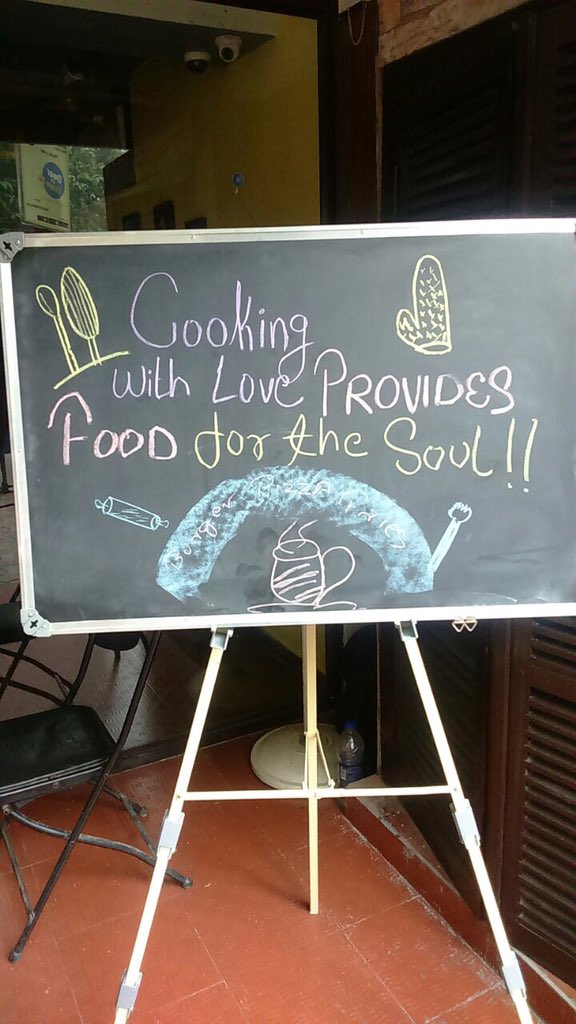 Cooking
with Love PROVIDES
FOOD for the Soul!!
Burger Pizza Fries